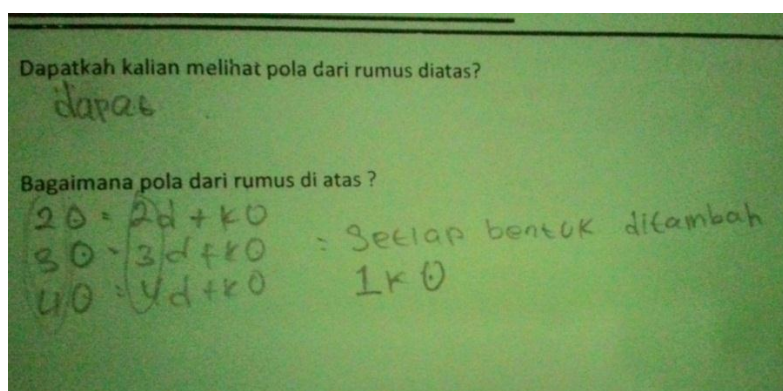 Dapatkah kalian melihat pola dari rumus diatas?
dapat
Bagaimana pola dari rumus di atas ?
2O = 2d + kO
3O = 3d + kO = Setiap bentuk ditambah
4O = 4d + kO 1kO